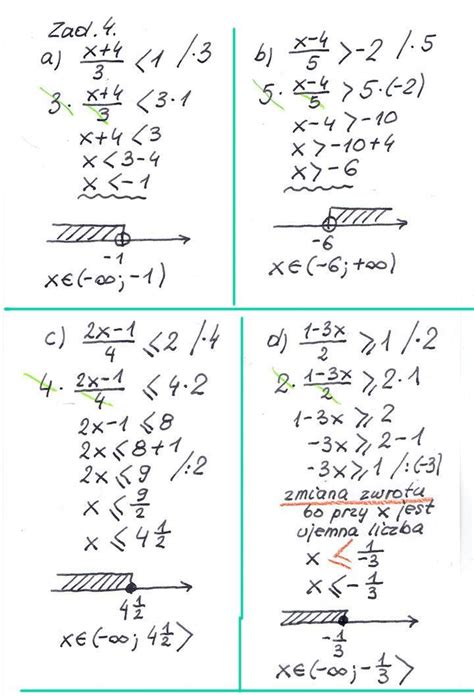 Zad.4.
a) (x+4)/3 < 1 /·3
3· (x+4)/3 < 3·1
x+4 < 3
x < 3-4
x < -1
-1
x∈(-∞; -1)
b) (x-4)/5 > -2 /·5
5· (x-4)/5 > 5·(-2)
x-4 > -10
x > -10+4
x > -6
-6
x∈(-6; +∞)
c) (2x-1)/4 ⩽ 2 /·4
4· (2x-1)/4 ⩽ 4·2
2x-1 ⩽ 8
2x ⩽ 8+1
2x ⩽ 9 /:2
x ⩽ 9/2
x ⩽ 4 1/2
4 1/2
x∈(-∞; 4 1/2 >
d) (1-3x)/2 ⩾ 1 /·2
2· (1-3x)/2 ⩾ 2·1
1-3x ⩾ 2
-3x ⩾ 2-1
-3x ⩾ 1 /:(-3)
zmiana zwrotu
bo przy x jest
ujemna liczba
x ⩽ 1/-3
x ⩽ -1/3
-1/3
x∈(-∞; -1/3 >